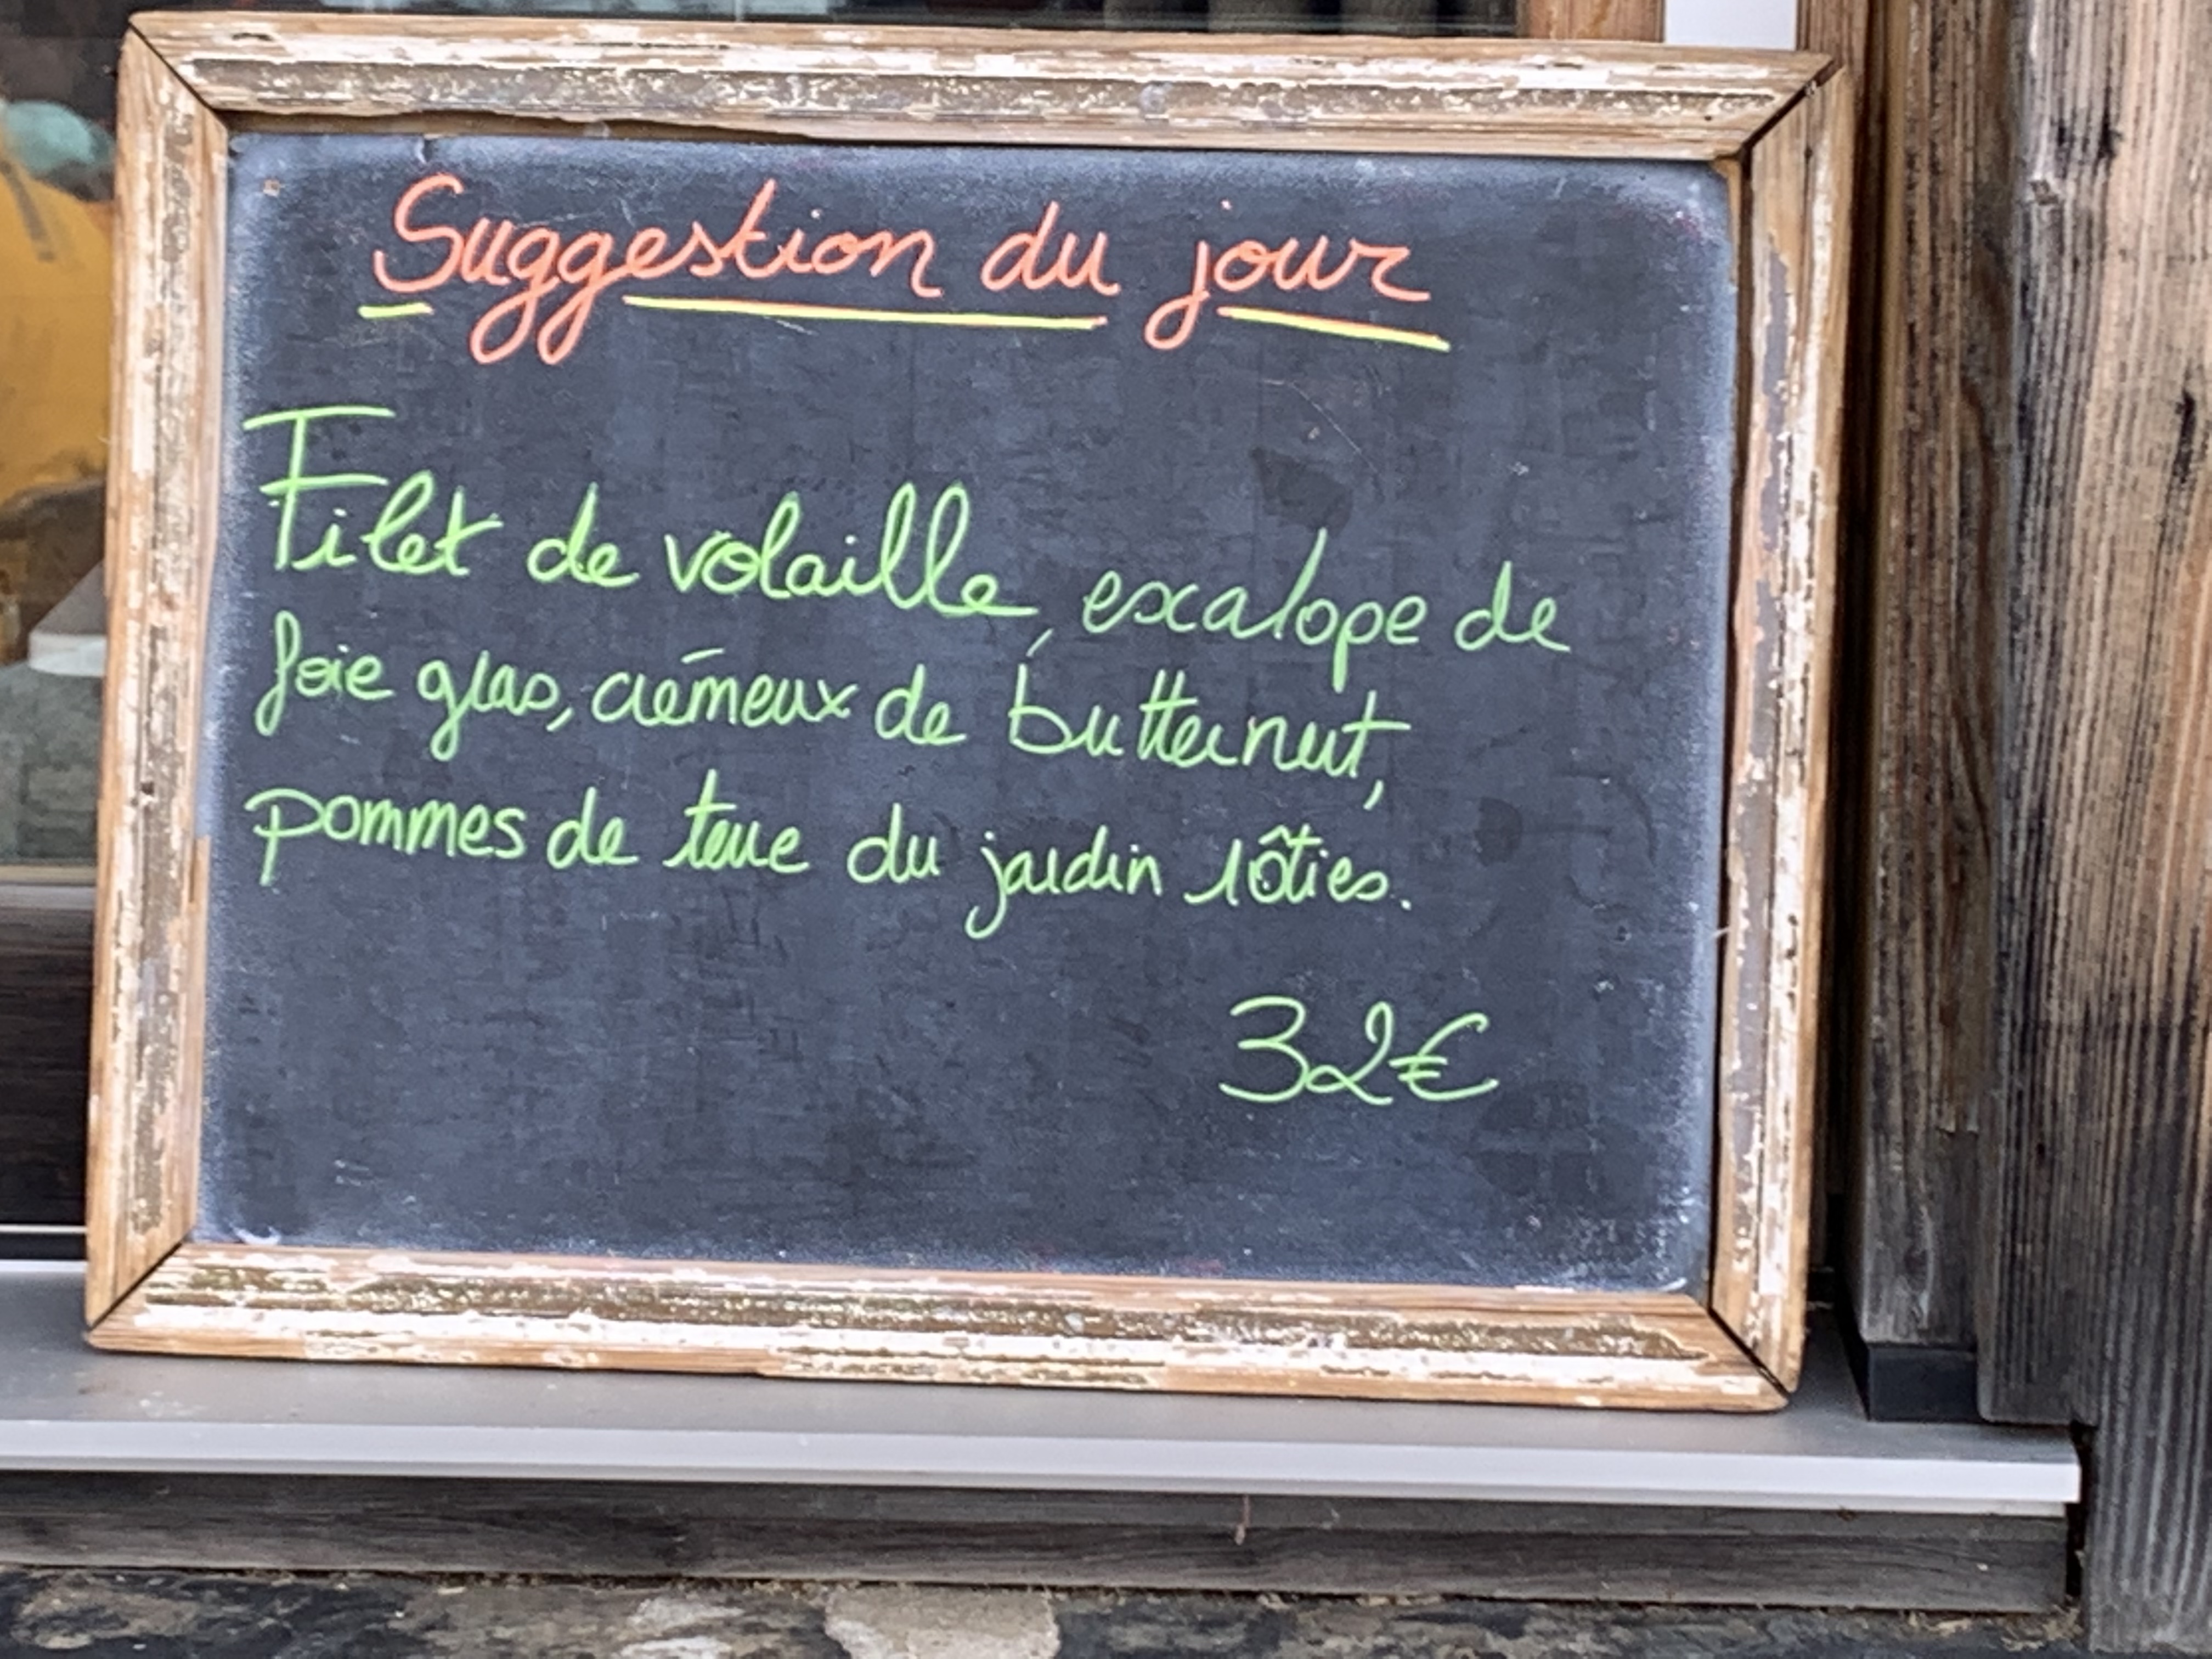 Suggestion du jour
Filet de volaille, escalope de
foie gras, crémeux de butternut,
pommes de terre du jardin rôties.
32€